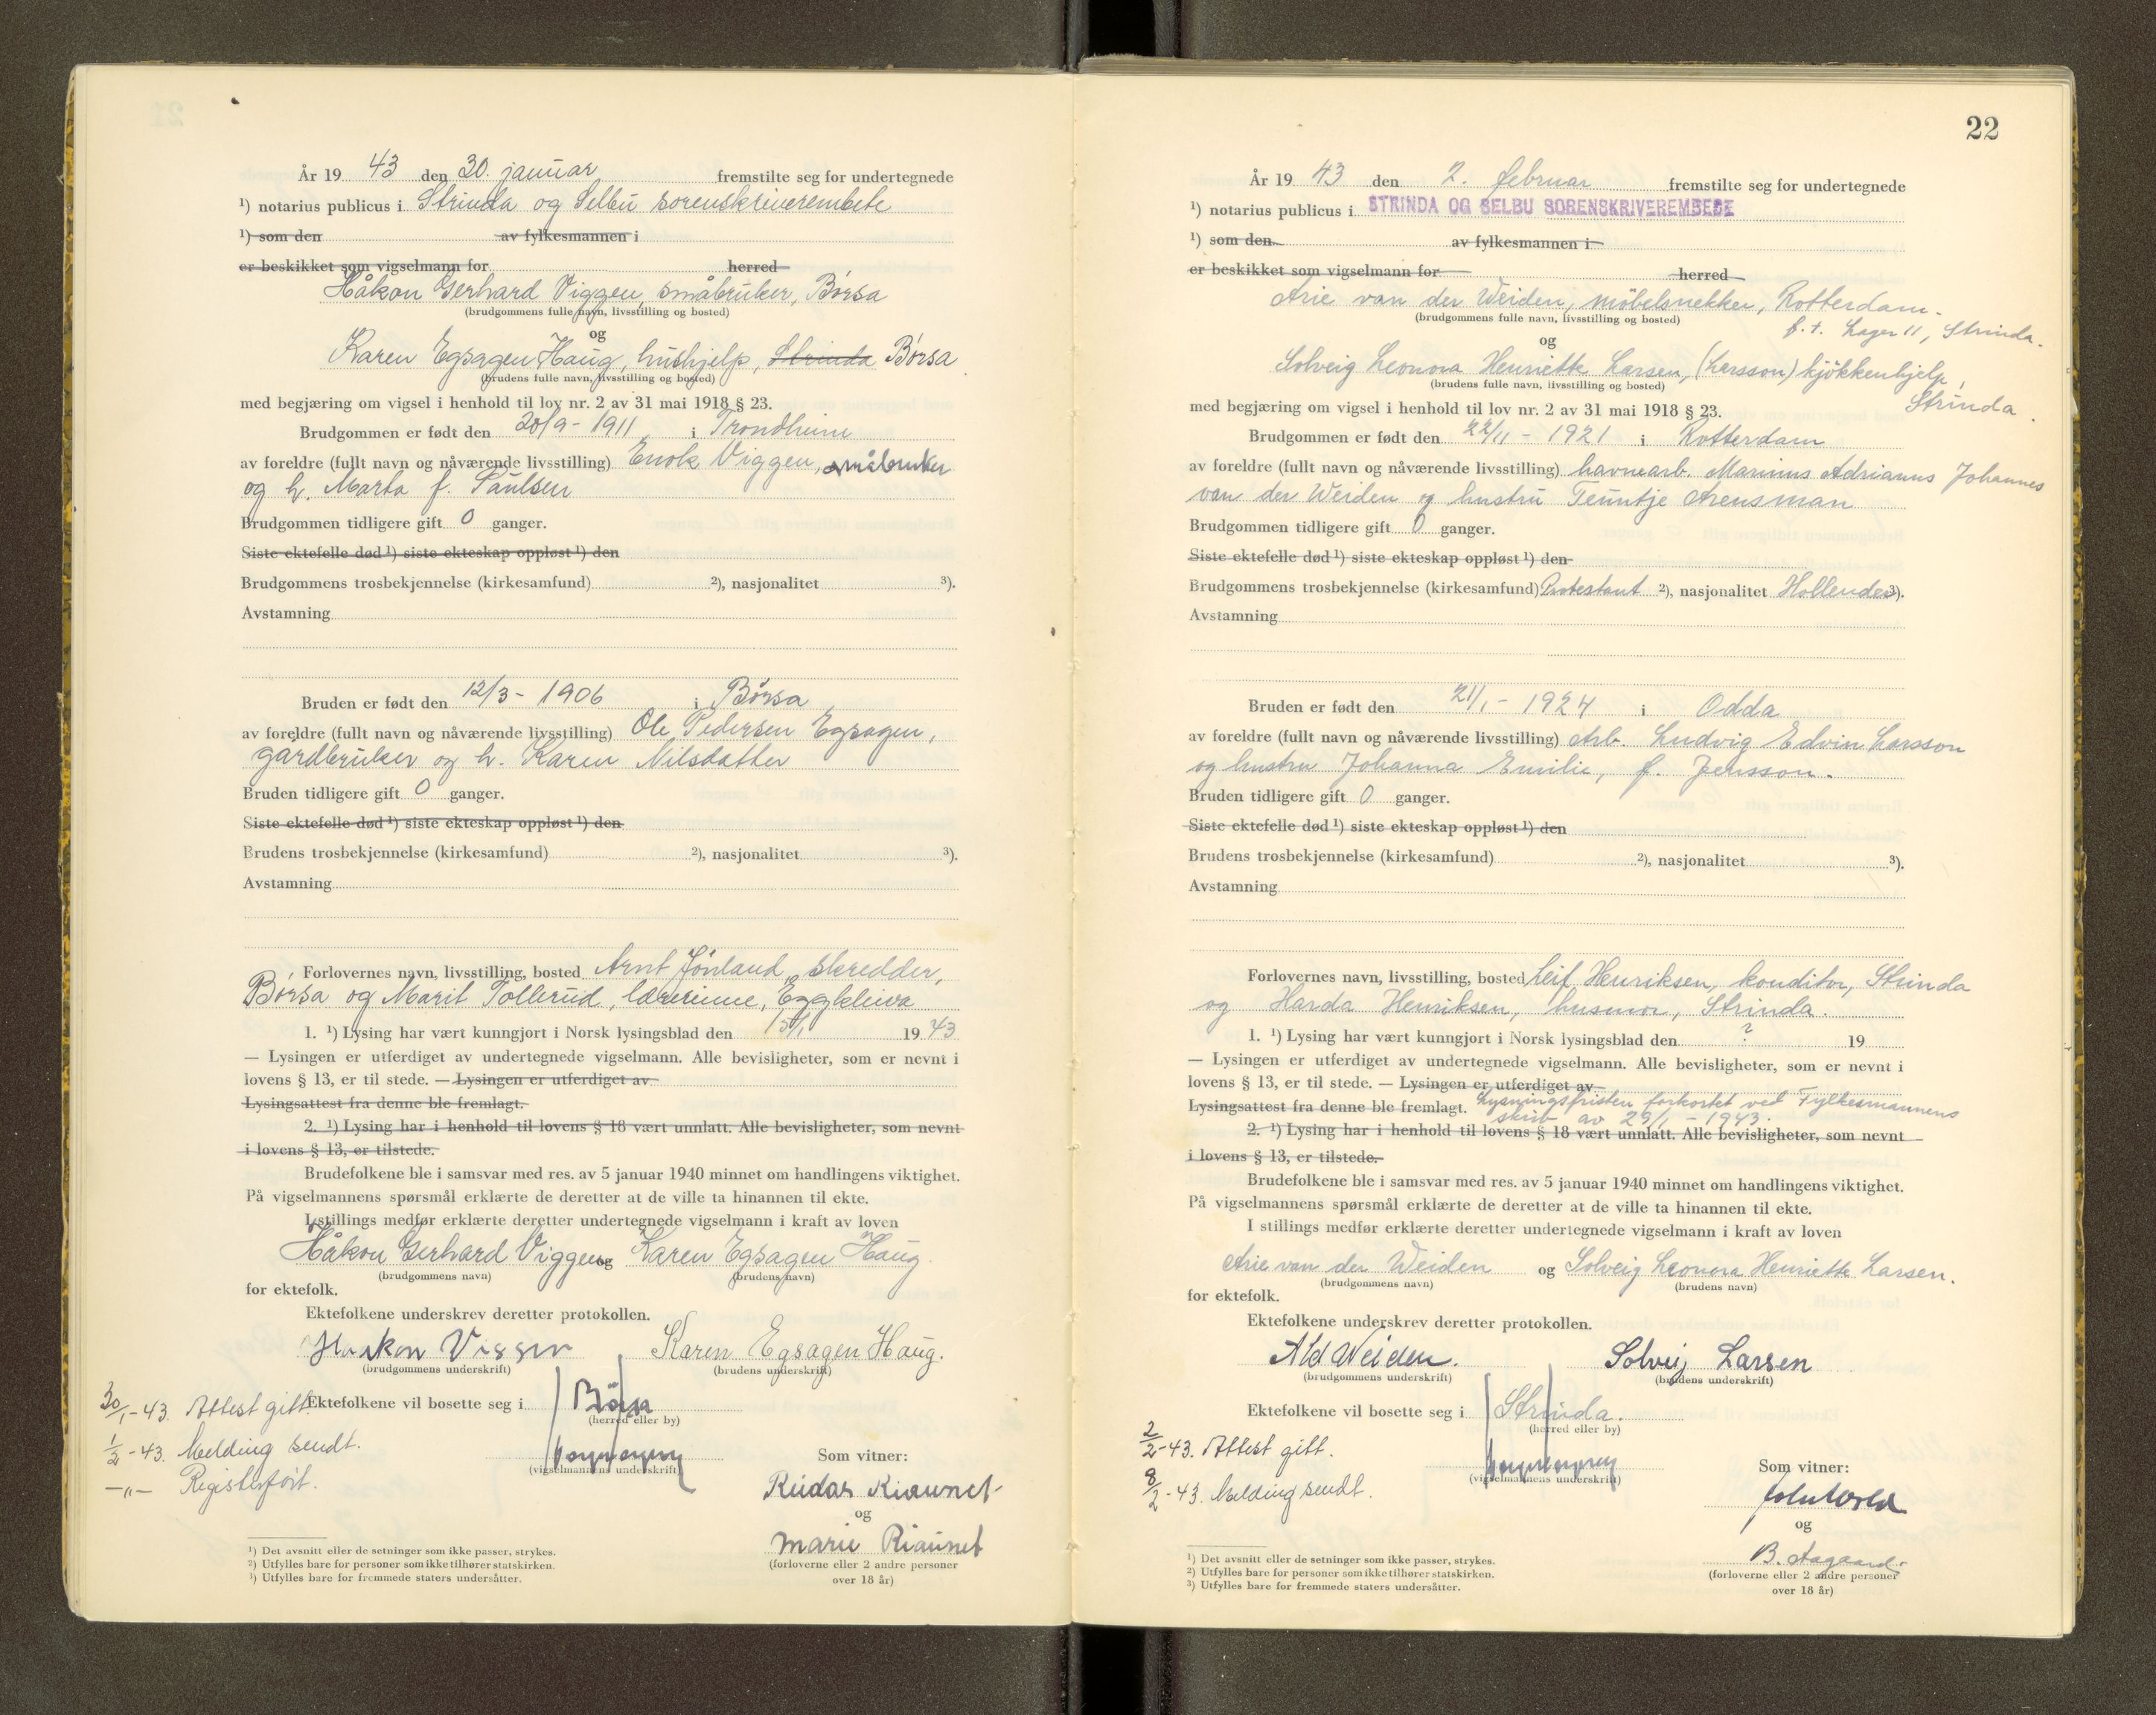 År 19 43 den 30. januar fremstilte seg for undertegnede
¹) notarius publicus i Strinda og Selbu sorenskriverembete
¹) som den av fylkesmannen i
er beskikket som vigselmann for herred
Håkon Gerhard Viggen, småbruker, Börsa
(brudgommens fulle navn, livsstilling og bosted)
og
Karen Egsagen Haug, hushjelp, Strinda Börsa
(brudens fulle navn, livsstilling og bosted)
med begjæring om vigsel i henhold til lov nr. 2 av 31 mai 1918 § 23.
Brudgommen er født den 20/9 - 1911 i Trondheim
av foreldre (fullt navn og nåværende livsstilling) Enok Viggen, småbruker
og h. Marta f. Paulsen
Brudgommen tidligere gift 0 ganger.
Siste ektefelle død ¹) siste ekteskap oppløst ¹) den
Brudgommens trosbekjennelse (kirkesamfund) ²), nasjonalitet ³).
Avstamning
Bruden er født den 12/3 - 1906 i Börsa
av foreldre (fullt navn og nåværende livsstilling) Ole Pedersen Egsagen,
gårdbruker og h. Karen Nilsdatter
Bruden tidligere gift 0 ganger.
Siste ektefelle død ¹) siste ekteskap oppløst ¹) den
Brudens trosbekjennelse (kirkesamfund) ²), nasjonalitet ³).
Avstamning
Forlovernes navn, livsstilling, bosted Arnt Jönland, skredder,
Börsa og Marit Tollerud, lærerinne, Eggkleiva
1. ¹) Lysing har vært kunngjort i Norsk lysingsblad den 15/1 19 43
— Lysingen er utferdiget av undertegnede vigselmann. Alle bevisligheter, som er nevnt i
lovens § 13, er til stede. — Lysingen er utferdiget av
Lysingsattest fra denne ble fremlagt.
2. ¹) Lysing har i henhold til lovens § 18 vært unnlatt. Alle bevisligheter, som nevnt
i lovens § 13, er tilstede.
Brudefolkene ble i samsvar med res. av 5 januar 1940 minnet om handlingens viktighet.
På vigselmannens spørsmål erklærte de deretter at de ville ta hinannen til ekte.
I stillings medfør erklærte deretter undertegnede vigselmann i kraft av loven
Håkon Gerhard Viggen og Karen Egsagen Haug
(brudgommens navn) (brudens navn)
for ektefolk.
Ektefolkene underskrev deretter protokollen.
Haakon Viggen Karen Egsagen Haug.
(brudgommens underskrift) (brudens underskrift)
30/1-43. Attest gitt. Ektefolkene vil bosette seg i Börsa
(herred eller by)
1/2-43. Melding sendt.
(vigselmannens underskrift) Som vitner:
—"— Registerfört.
Reidar Riaunet
og
Marie Riaunet
(forloverne eller 2 andre personer
over 18 år)
¹) Det avsnitt eller de setninger som ikke passer, strykes.
²) Utfylles bare for personer som ikke tilhører statskirken.
³) Utfylles bare for fremmede staters undersåtter.
22
År 19 43 den 2. februar fremstilte seg for undertegnede
¹) notarius publicus i STRINDA OG SELBU SORENSKRIVEREMBEDE
¹) som den av fylkesmannen i
er beskikket som vigselmann for herred
Arie van der Weiden, möbelsnekker, Rotterdam.
(brudgommens fulle navn, livsstilling og bosted)
f.t. Lager 11, Strinda.
og
Solveig Leonora Henriette Larsen, (Larsson) kjökkenhjelp,
(brudens fulle navn, livsstilling og bosted)
Strinda.
med begjæring om vigsel i henhold til lov nr. 2 av 31 mai 1918 § 23.
Brudgommen er født den 22/11 - 1921 i Rotterdam
av foreldre (fullt navn og nåværende livsstilling) havnearb. Marinus Adrianus Johannes
van der Weiden og hustru Teuntje Arensman
Brudgommen tidligere gift 0 ganger.
Siste ektefelle død ¹) siste ekteskap oppløst ¹) den
Brudgommens trosbekjennelse (kirkesamfund) Protestant ²), nasjonalitet Hollender ³).
Avstamning
Bruden er født den 21/1 - 1924 i Odda
av foreldre (fullt navn og nåværende livsstilling) Arb. Ludvig Edvin Larsson
og hustru Johanna Emilie, f. Jensson.
Bruden tidligere gift 0 ganger.
Siste ektefelle død ¹) siste ekteskap oppløst ¹) den
Brudens trosbekjennelse (kirkesamfund) ²), nasjonalitet ³).
Avstamning
Forlovernes navn, livsstilling, bosted Leif Henriksen, konditor, Strinda
og Harda Henriksen, husmor, Strinda.
1. ¹) Lysing har vært kunngjort i Norsk lysingsblad den ? 19
— Lysingen er utferdiget av undertegnede vigselmann. Alle bevisligheter, som er nevnt i
lovens § 13, er til stede. — Lysingen er utferdiget av
Lysingsattest fra denne ble fremlagt. Lysningsfristen forkortet ved Fylkesmannens
skriv av 29/1 - 1943.
2. ¹) Lysing har i henhold til lovens § 18 vært unnlatt. Alle bevisligheter, som nevnt
i lovens § 13, er tilstede.
Brudefolkene ble i samsvar med res. av 5 januar 1940 minnet om handlingens viktighet.
På vigselmannens spørsmål erklærte de deretter at de ville ta hinannen til ekte.
I stillings medfør erklærte deretter undertegnede vigselmann i kraft av loven
Arie van der Weiden og Solveig Leonora Henriette Larsen.
(brudgommens navn) (brudens navn)
for ektefolk.
Ektefolkene underskrev deretter protokollen.
AvdWeiden. Solveig Larsen
(brudgommens underskrift) (brudens underskrift)
Ektefolkene vil bosette seg i Strinda.
(herred eller by)
2/2-43. Attest gitt.
(vigselmannens underskrift) Som vitner:
8/2-43. Melding sendt.
og
B. Aagaard
(forloverne eller 2 andre personer
over 18 år)
¹) Det avsnitt eller de setninger som ikke passer, strykes.
²) Utfylles bare for personer som ikke tilhører statskirken.
³) Utfylles bare for fremmede staters undersåtter.